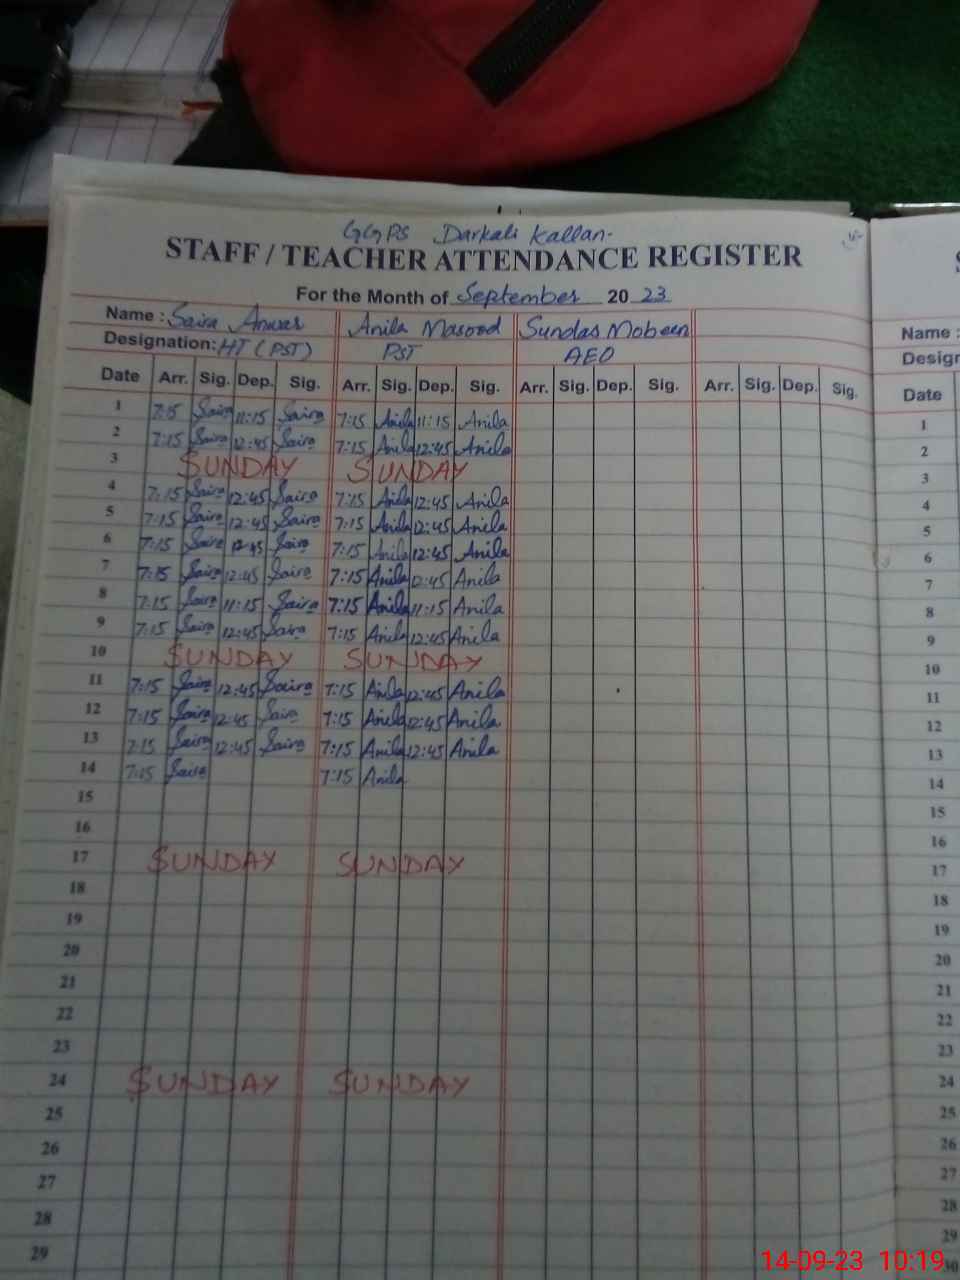 GGPS Darkali Kallan.
STAFF / TEACHER ATTENDANCE REGISTER
For the Month of September 20 23
Name : Saira Anwar Anila Masood Sundas Mobeen
Designation: HT (PST) PST AEO
Date Arr. Sig. Dep. Sig. Arr. Sig. Dep. Sig. Arr. Sig. Dep. Sig. Arr. Sig. Dep. Sig.
1 7:15 Saira 11:15 Saira 7:15 Anila 11:15 Anila
2 7:15 Saira 12:45 Saira 7:15 Anila 12:45 Anila
3 SUNDAY SUNDAY
4 7:15 Saira 12:45 Saira 7:15 Anila 12:45 Anila
5 7:15 Saira 12:45 Saira 7:15 Anila 12:45 Anila
6 7:15 Saira 12:45 Saira 7:15 Anila 12:45 Anila
7 7:15 Saira 12:45 Saira 7:15 Anila 12:45 Anila
8 7:15 Saira 11:15 Saira 7:15 Anila 11:15 Anila
9 7:15 Saira 12:45 Saira 7:15 Anila 12:45 Anila
10 SUNDAY SUNDAY
11 7:15 Saira 12:45 Saira 7:15 Anila 12:45 Anila
12 7:15 Saira 12:45 Saira 7:15 Anila 12:45 Anila
13 7:15 Saira 12:45 Saira 7:15 Anila 12:45 Anila
14 7:15 Saira 7:15 Anila
15
16
17 SUNDAY SUNDAY
18
19
20
21
22
23
24 SUNDAY SUNDAY
25
26
27
28
29
Name :
Date
1
2
3
4
5
6
7
8
9
10
11
12
13
14
15
16
17
18
19
20
21
22
23
24
25
26
27
28
29
14-09-23 10:19